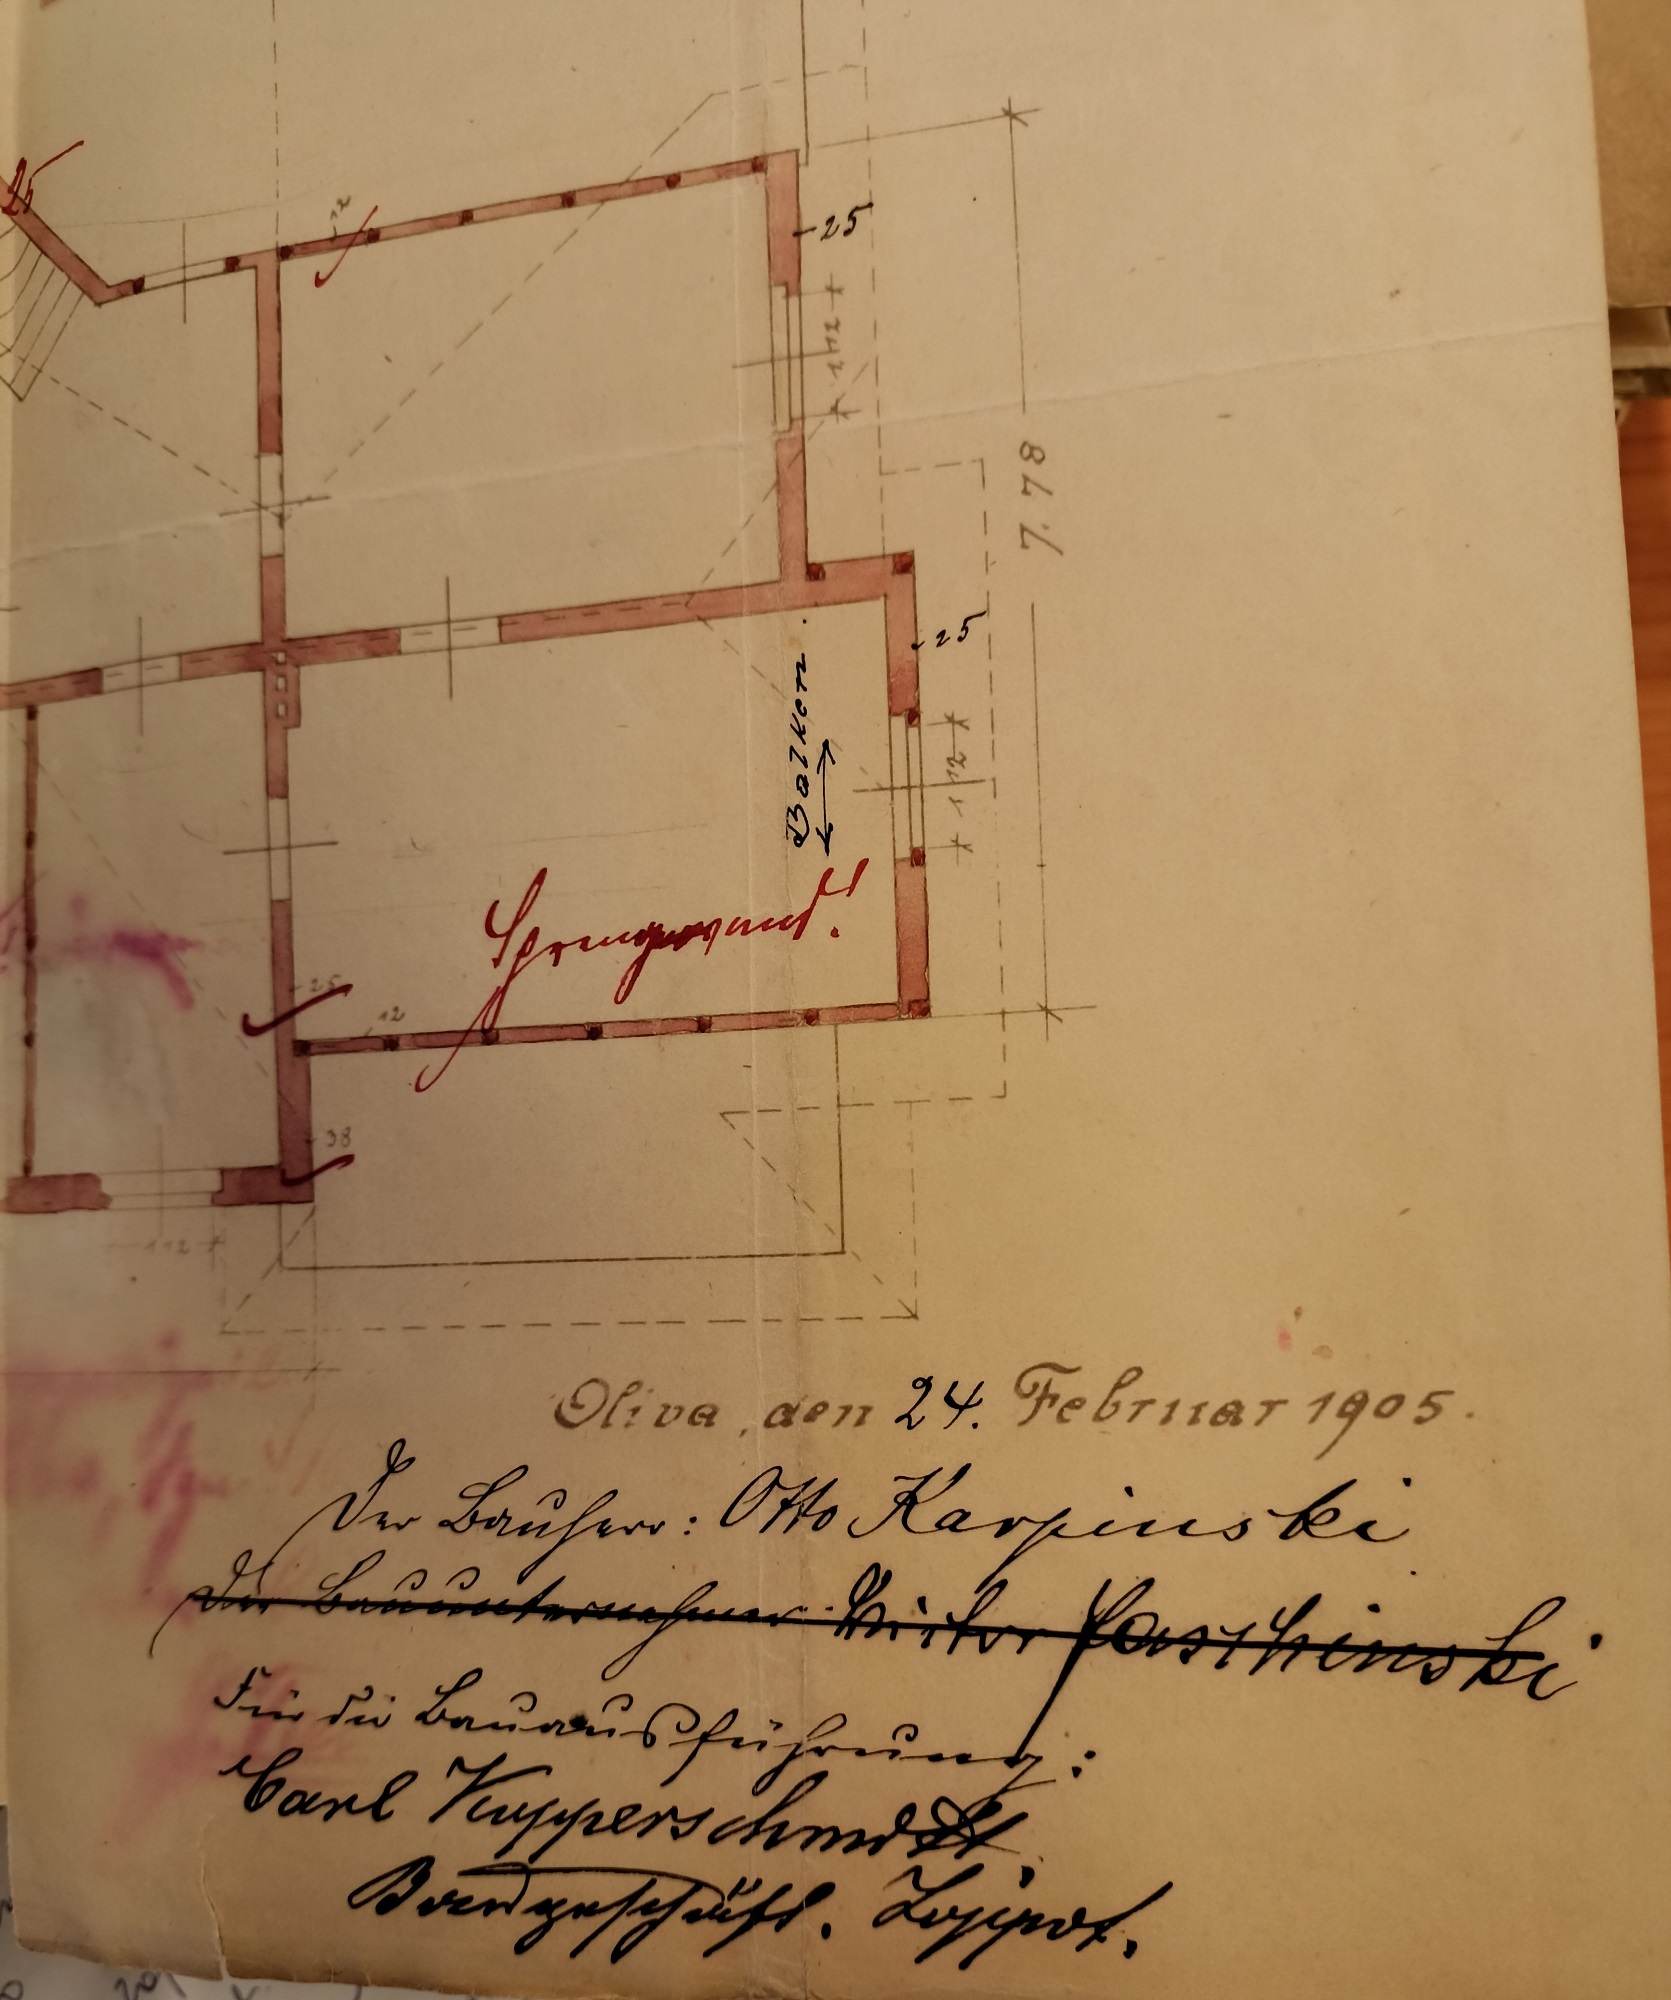 25
12
25
1 42
7.78
25
Balken.
1 12
Sprengwand!
25
12
38
112
Oliva, den 24. Februar 1905.
Der Bauherr: Otto Karpinski
Der Bauunternehmer
Für die Bauausführung:
Carl Kupperschmidt.
Baugeschäft. Zoppot.